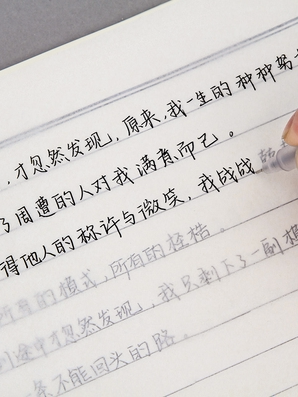 ，才忽然发现，原来，我一生的种种努
了周遭的人对我满意而已。
得他人的称许与微笑，我战战
所有的模式，所有的桎梏。
途中才忽然发现，我只剩下了一副模
条不能回头的路。